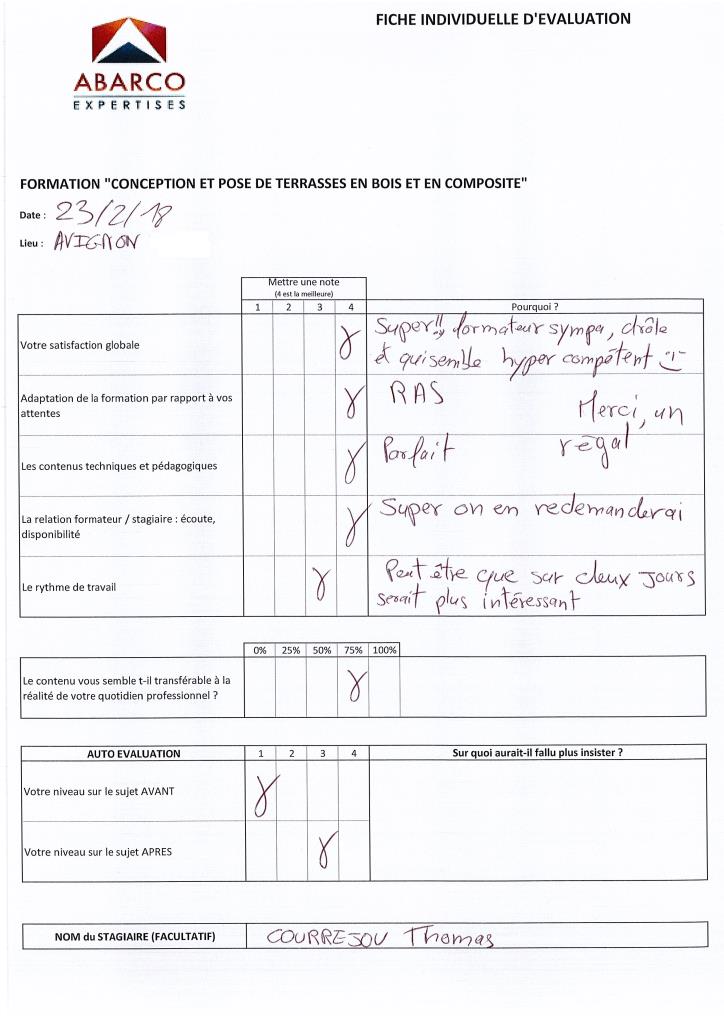 FICHE INDIVIDUELLE D'EVALUATION
ABARCO
EXPERTISES
FORMATION "CONCEPTION ET POSE DE TERRASSES EN BOIS ET EN COMPOSITE"
Date : 23/2/18
Lieu : AVIGNON
Mettre une note
(4 est la meilleure)
1 2 3 4 Pourquoi ?
Votre satisfaction globale
Super!! formateur sympa, drôle
et qui semble hyper compétent :-)
Adaptation de la formation par rapport à vos
attentes
RAS
Merci, un
régal
Les contenus techniques et pédagogiques
Parfait
La relation formateur / stagiaire : écoute,
disponibilité
Super on en redemanderai
Le rythme de travail
Peut être que sur deux jours
serait plus intéressant
0% 25% 50% 75% 100%
Le contenu vous semble t-il transférable à la
réalité de votre quotidien professionnel ?
AUTO EVALUATION 1 2 3 4 Sur quoi aurait-il fallu plus insister ?
Votre niveau sur le sujet AVANT
Votre niveau sur le sujet APRES
NOM du STAGIAIRE (FACULTATIF) COURREJOU Thomas